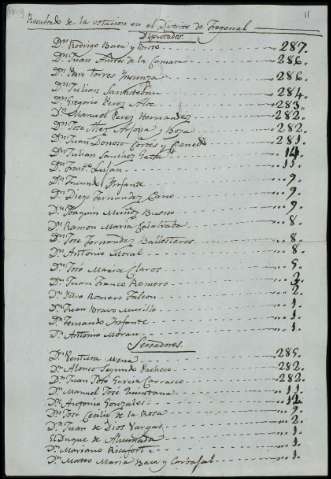 Resultado de la votacion en el Distrito de Fregenal 11
Diputados
Dn. Rodrigo Baca y 287.
Dn. Juan de la Camara 286.
Dn. Torres 286.
Dn. Julian 284.
Dn. Gregorio Perez 283.
Dn. Manuel Perez Hernandez 282.
Dn. Jose y 282.
Dn. Juan Donoso Cortes y 281.
Dn. Julian Sanchez 14.
Dn. Lujan 11.
Dn. Infante 9.
Dn. Diego Fernandez Cano 9.
Dn. Joaquin Muñoz Bueno 9.
Dn. Ramon Maria Calatrava 8.
Dn. Jose Fernandez Ballesteros 8.
Dn. Antonio 8.
Dn. Jose Maria Claros 5.
Dn. Juan Franco Romero
Dn. Romero Falcon
Dn. Juan Bravo Murillo 1.
Dn. Fernando Infante 1.
Dn. Antonio Moran 1.
Senadores.
Dn. Ventura Mena 285.
Dn. Alonso Segundo Pacheco 282.
Dn. Juan Jose Garcia Carrasco 282.
Dn. Manuel Jose Quintana 11.
Dn. Antonio Gonzalez 12.
Dn. Jose Cecilio de la Rosa 9.
Dn. Juan de Dios Vargas 2.
El Duque de Ahumada 1.
Dn. Mariano Ricafort 1.
Dn. Mateo Maria Baca y Carbajal 1.